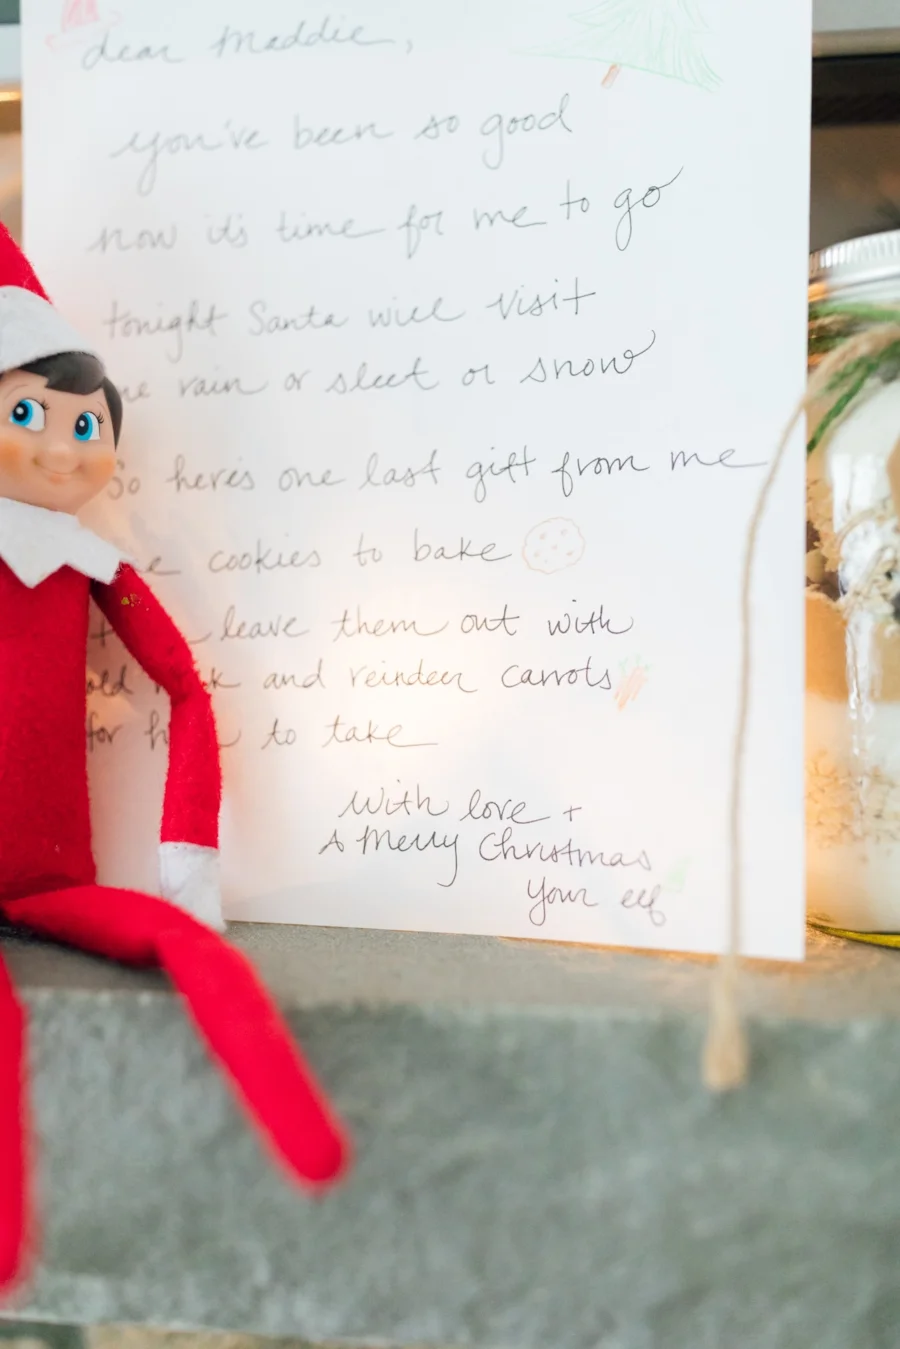 dear Maddie,
you've been so good
now it's time for me to go
tonight Santa will visit
rain or sleet or snow
So here's one last gift from me
cookies to bake
leave them out with
and reindeer carrots
for to take
With love +
A Merry Christmas
Your elf